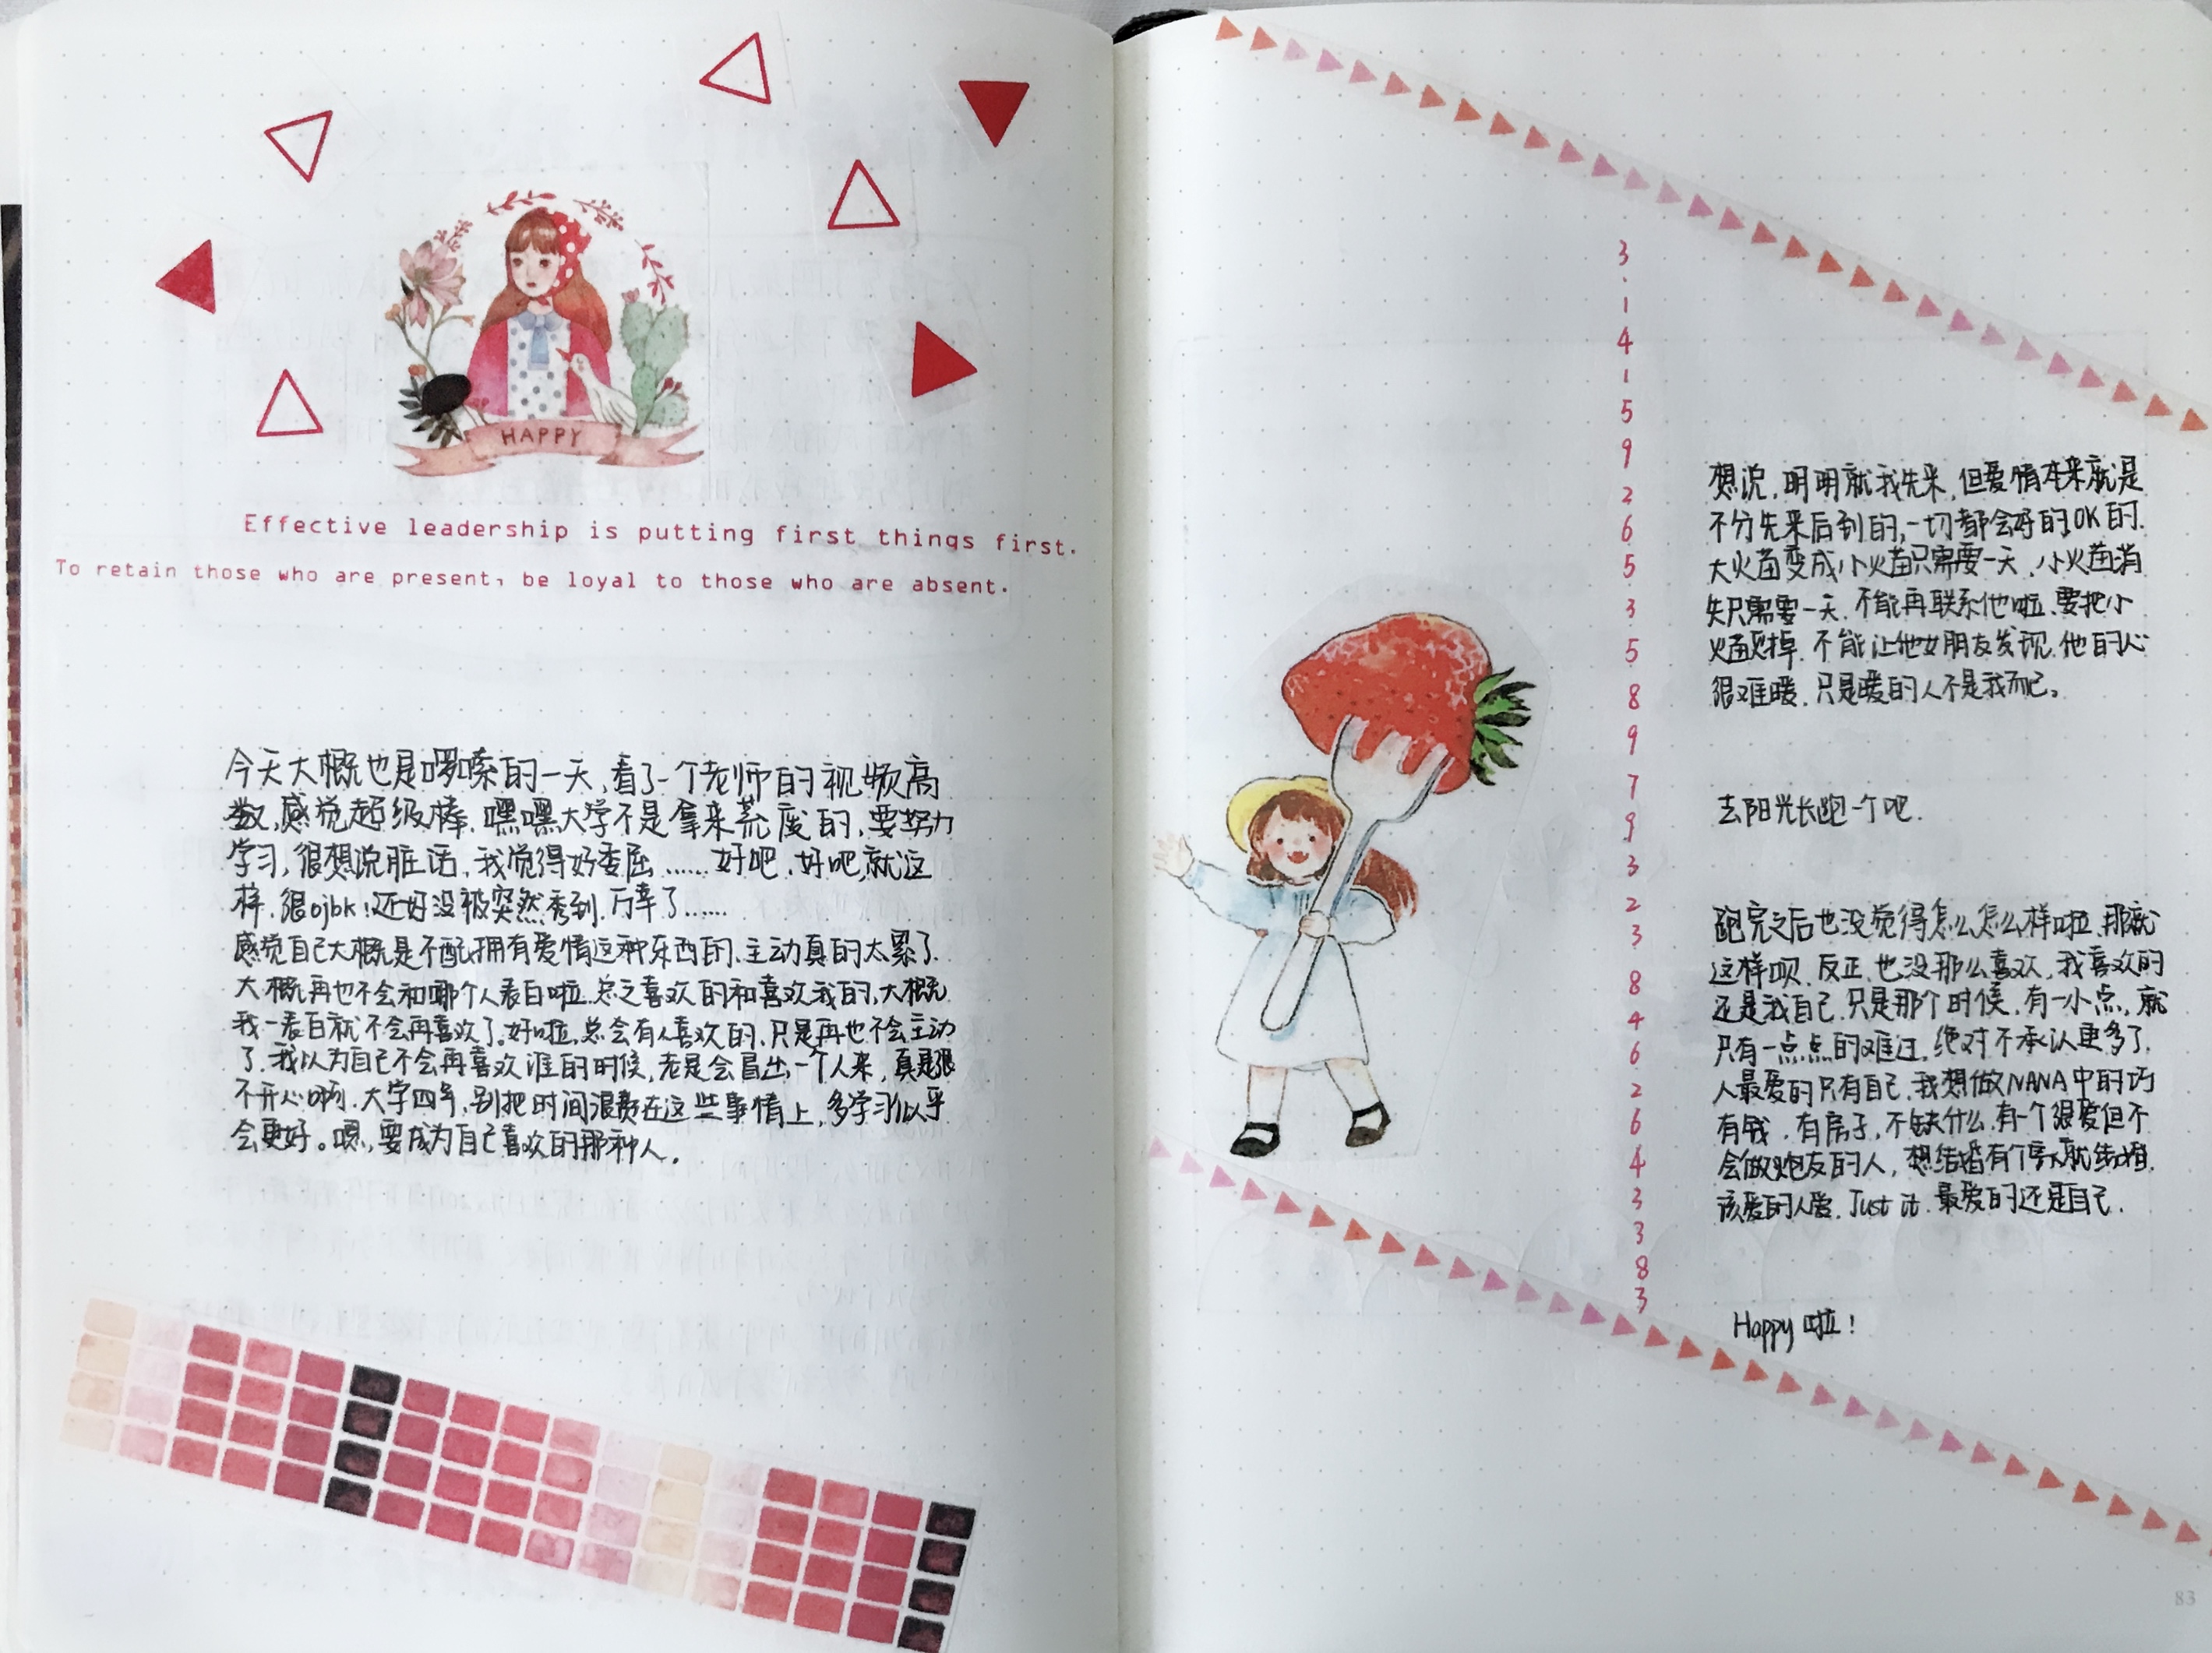 HAPPY
Effective leadership is putting first things first.
To retain those who are present, be loyal to those who are absent.
今天大概也是啰嗦的一天,看了一个老师的视频高
数,感觉超级棒.嘿嘿大学不是拿来荒废的,要努力
学习,很想说脏话,我觉得好委屈……好吧.好吧,就这
样.很ojbk!还好没被突然秀到.万幸了……
感觉自己大概是不配拥有爱情这种东西的.主动真的太累了.
大概再也不会和哪个人表白啦.总之喜欢的和喜欢我的,大概
我一表白就不会再喜欢了.好啦,总会有人喜欢的.只是再也不会主动
了.我以为自己不会再喜欢谁的时候,老是会冒出一个人来,真是很
不开心啊.大学四年,别把时间浪费在这些事情上,多学习似乎
会更好。嗯,要成为自己喜欢的那种人.
3
.
1
4
1
5
9
2
6
5
3
5
8
9
7
9
3
2
3
8
4
6
2
6
4
3
3
8
3
想说,明明就我先来,但爱情本来就是
不分先来后到的,一切都会好的OK的.
大火苗变成小火苗只需要一天.小火苗消
失只需要一天.不能再联系他啦.要把小
火苗灭掉.不能让他女朋友发现.他的心
很难暖.只是暖的人不是我而已。
去阳光长跑一个吧.
跑完之后也没觉得怎么怎么样啦.那就
这样呗.反正.也没那么喜欢,我喜欢的
还是我自己.只是那个时候,有一小点,就
只有一点点的难过.绝对不承认更多了.
人最爱的只有自己.我想做NANA中的巧
有钱.有房子,不缺什么.有一个很爱但不
会做炮友的人,想结婚有个就结婚.
该爱的人爱.Just it.最爱的还是自己.
Happy啦!
83